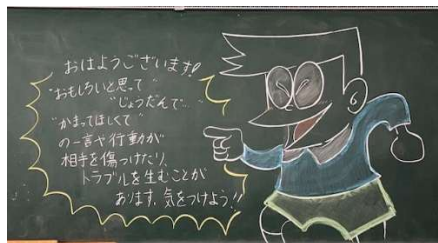 おはようございます!
"おもしろいと思って"
"じょうだんで…"
"かまってほしくて"
の一言や行動が
相手を傷つけたり、
トラブルを生むことが
あります。気をつけよう!!